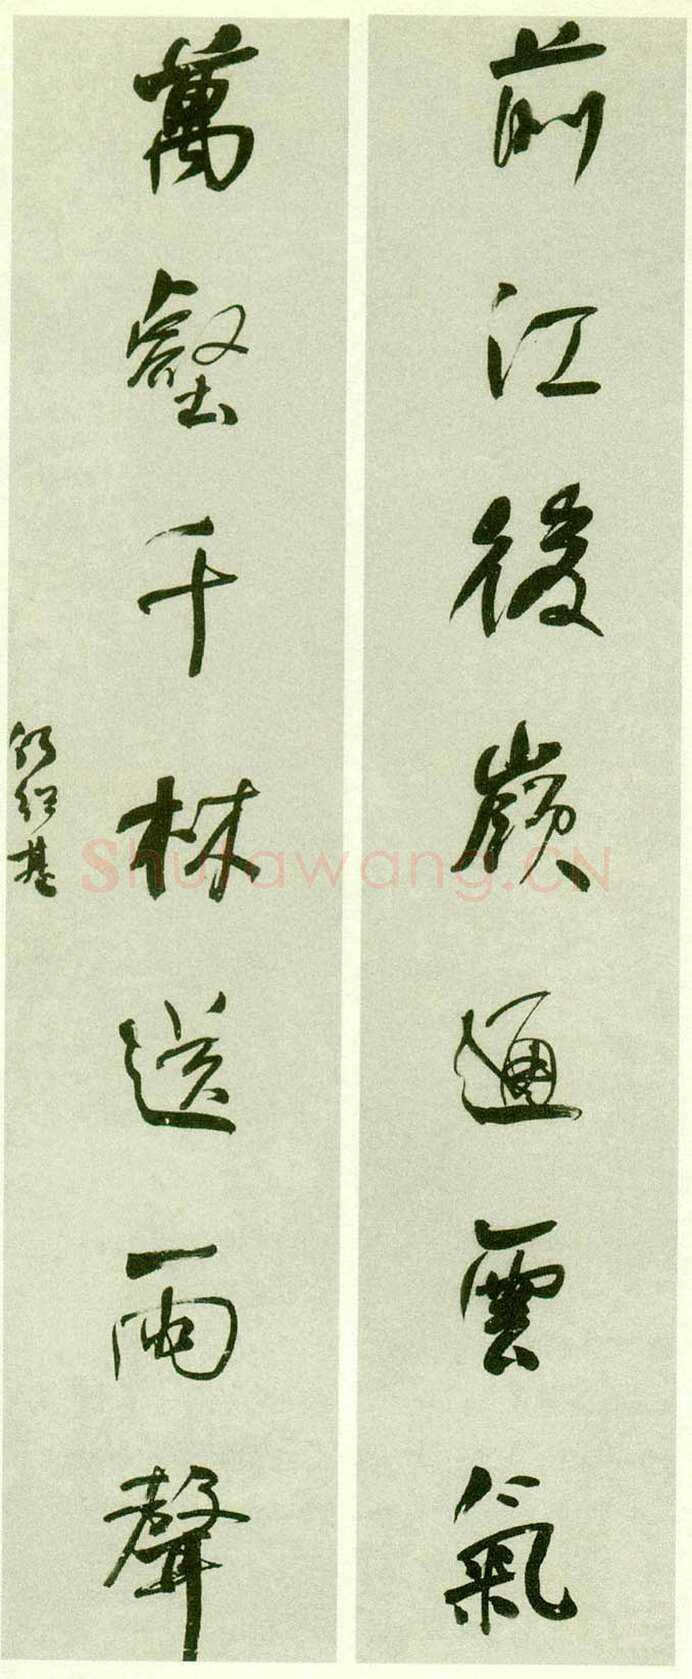 前江後嶺通雲氣
萬壑千林送雨聲
何紹基
Shufawang.CN